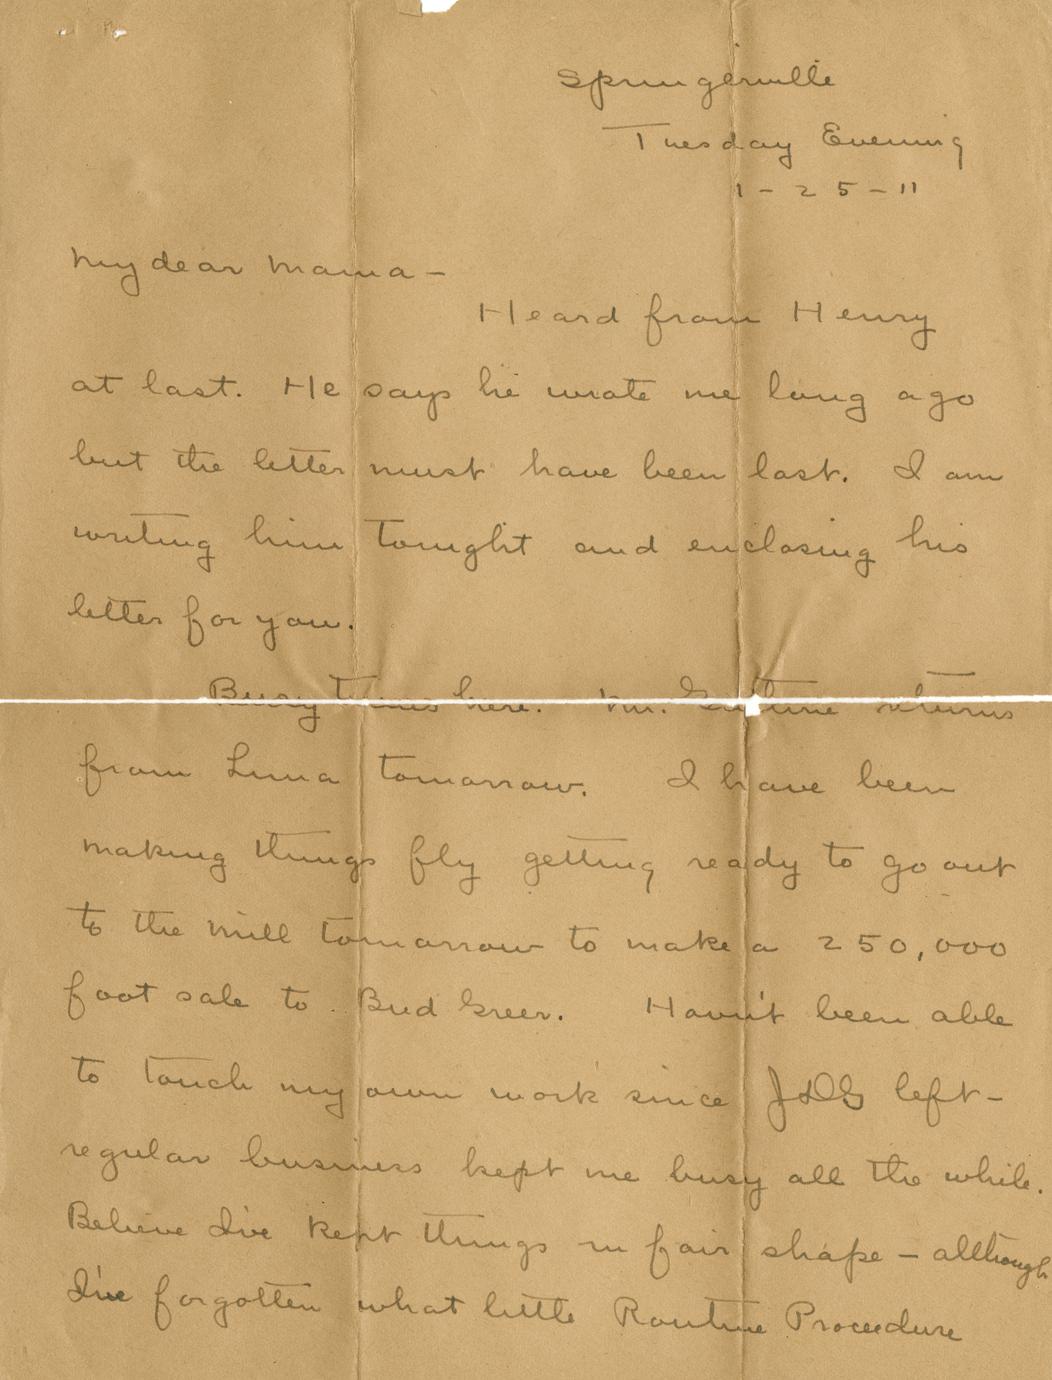 Springerville
Tuesday Evening
1-25-11
My dear Mama -
Heard from Henry
at last. He says he wrote me long ago
but the letter must have been lost. I am
writing him tonight and enclosing his
letter for you.
Busy times here. Mr. Guthrie returns
from Luna tomorrow. I have been
making things fly getting ready to go out
to the mill tomorrow to make a 250,000
foot sale to Bud Greer. Havn't been able
to touch my own work since JDG left -
regular business kept me busy all the while.
Believe I've kept things in fair shape - although
I've forgotten what little Routine Procedure